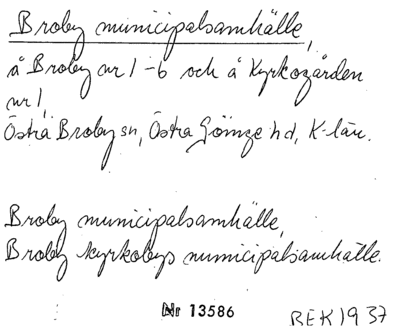 Broby municipalsamhälle,
å Broby nr 1-6 och å Kyrkogården
nr 1,
Östra Broby sn, Östra Göinge hd, K-län.
Broby municipalsamhälle,
Broby kyrkobys municipalsamhälle.
Nr 13586
BEK 1937